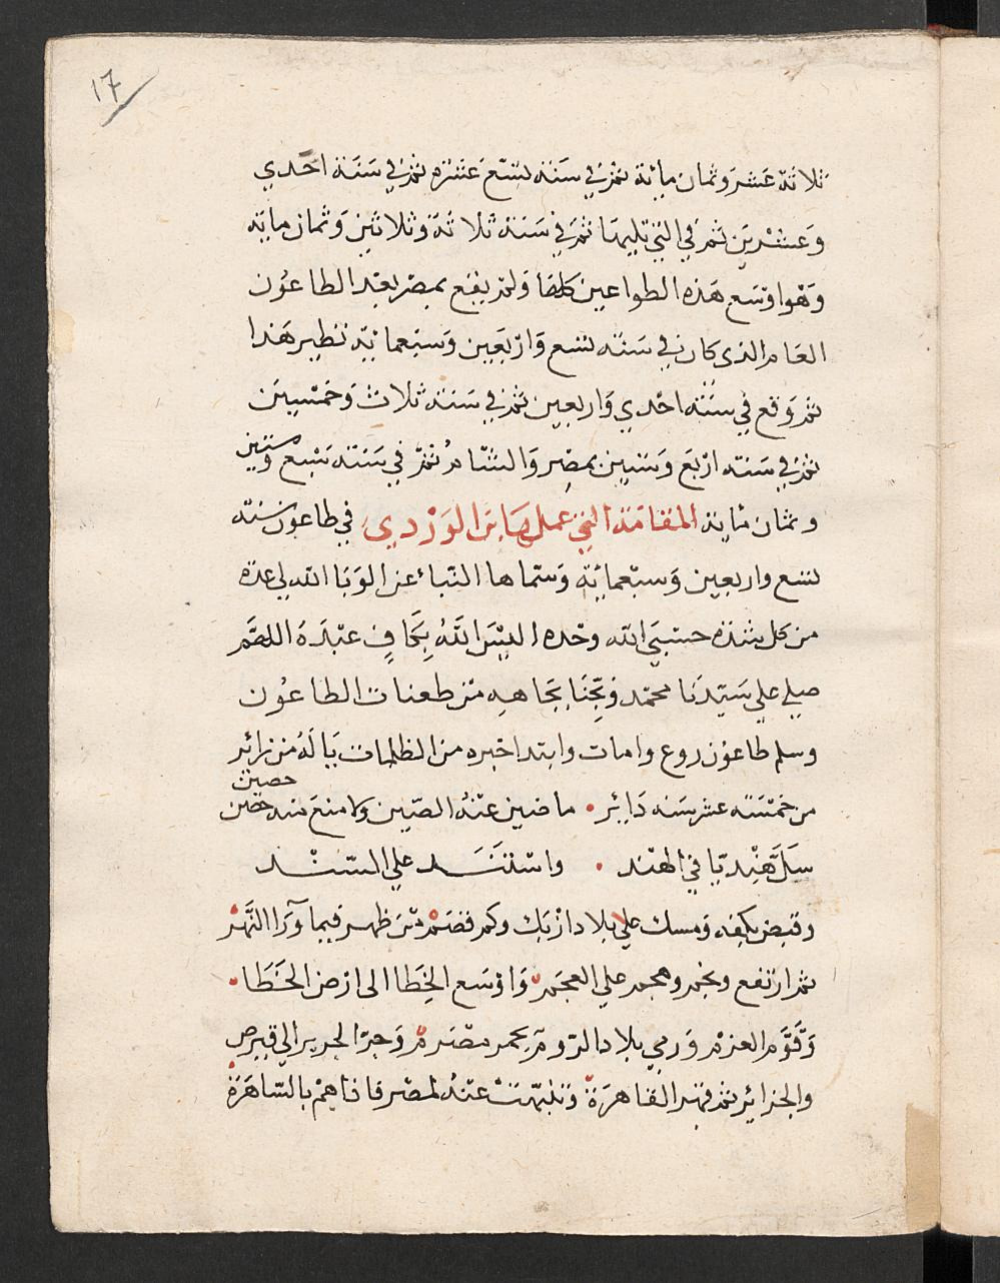 17
ثلاثة عشر وثمان مائة ثم في سنة تسع عشره ثم في سنة احدي
وعشرين ثم في التي تليها ثم في سنة ثلاثة وثلاثين وثمان مايه
وهو اوسع هذه الطواعين كلها ولم يقع بمصر بعد الطاعون
العام الذي كان في سنة تسع واربعين وسبعمائة نظير هذا
ثم وقع في سنة احدي واربعين ثم في سنة ثلاث وخمسين
ثم في سنة اربع وستين بمصر والشام ثم في سنة سبع وستين
وثمان مايه المقامة التي عملها بن الوردي في طاعون سنة
تسع واربعين وسبعمائة وسماها النبا عن الوبا الله لي عدة
من كل شده حسبي الله وحده اليس الله بكاف عبده اللهم
صلي علي سيدنا محمد ونجنا بجاهه من طعنات الطاعون
وسلم طاعون روع وامات وابتدا خبره من الظلمات يا له من زائر
حصين
من خمسة عشر سنه دائر ما ضين عنه الصين ولا منع منه حصن
سل هنديا في الهند واستند علي السند
وقبض بكفه ومسك علي بلاد ازبك وكم قصم من ظهر فيما ورا النهر
ثم ارتفع ونجم وهجم علي العجم واوسع الخطا الى ارض الخطا
وقوم العزم ورمي بلاد الروم بجمر مضرم وجر الجرير الي قبرص
والجزائر ثم قهر القاهرة وتنبهت عنه لمصر فاذاهم بالساهرة